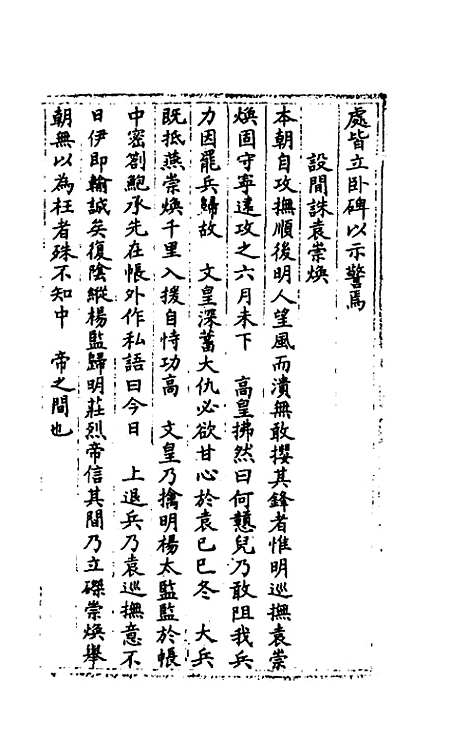 處皆立卧碑以示警焉
設間誅袁崇煥
本朝自攻撫順後明人望風而潰無敢攖其鋒者惟明巡撫袁崇
煥固守寧遠攻之六月未下 高皇拂然曰何戇兒乃敢阻我兵
力因罷兵歸故 文皇深蓄大仇必欲甘心於袁己巳冬 大兵
既抵燕崇煥千里入援自恃功高 文皇乃擒明楊太監監於帳
中密劄鮑承先在帳外作私語曰今日 上退兵乃袁巡撫意不
日伊即輸誠矣復陰縱楊監歸明莊烈帝信其間乃立磔崇煥舉
朝無以為枉者殊不知中 帝之間也